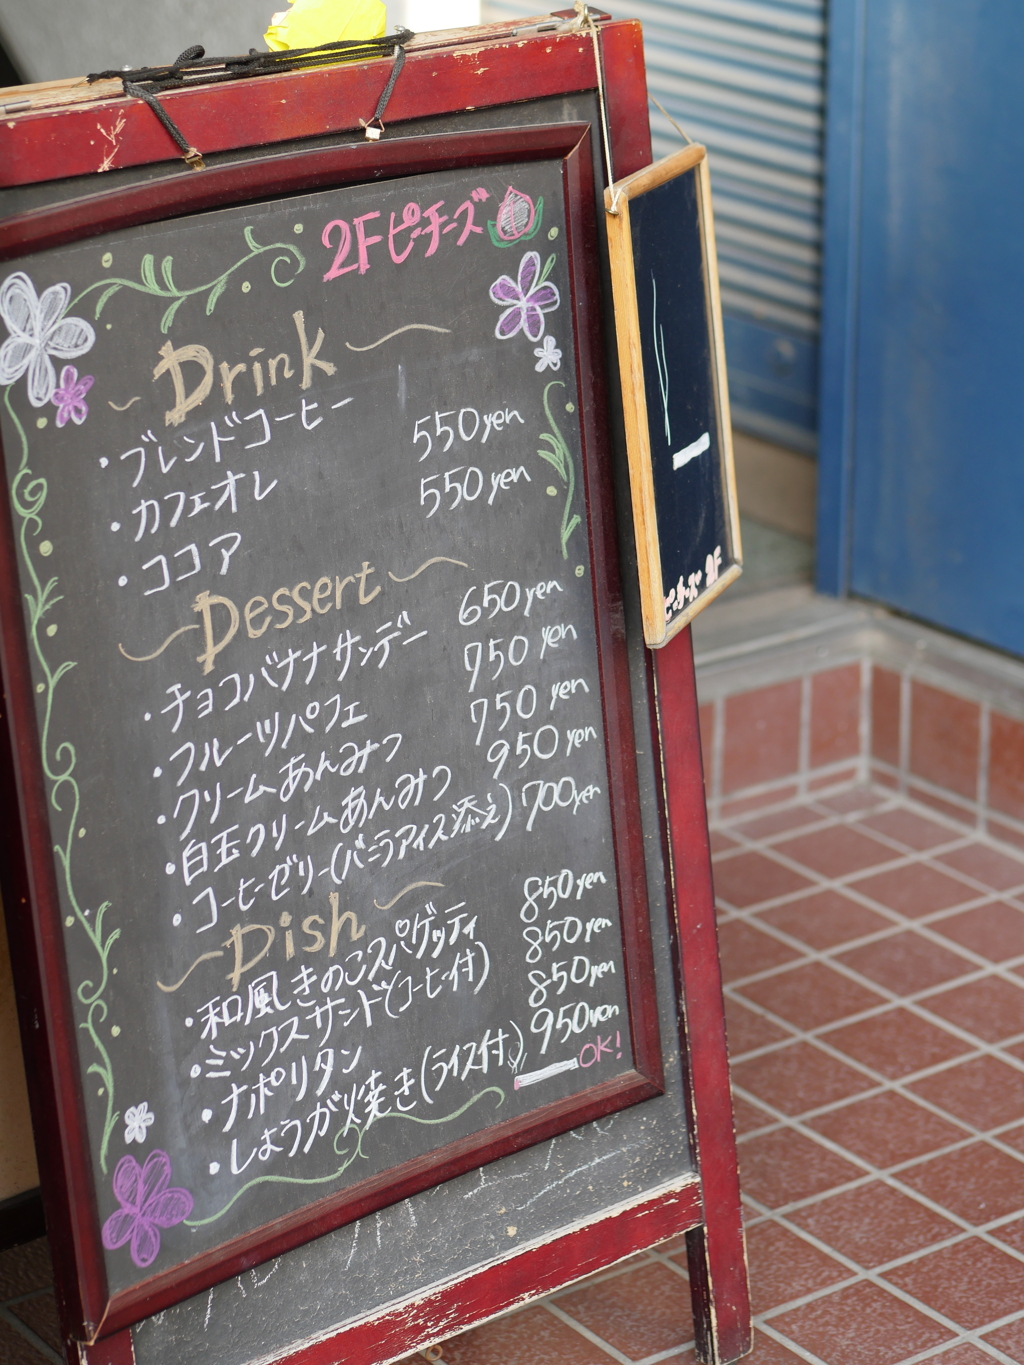 2Fピーチーズ
Drink
・ブレンドコーヒー
・カフェオレ 550yen
・ココア 550yen
Dessert
・チョコバナナサンデー 650yen
・フルーツパフェ 750yen
・クリームあんみつ 750yen
・白玉クリームあんみつ 950yen
・コーヒーゼリー(バニラアイス添え) 700yen
Dish
・和風きのこスパゲッティ 850yen
・ミックスサンド(コーヒー付) 850yen
・ナポリタン 850yen
・しょうが焼き(ライス付) 950yen
OK!
ピーチーズ 2F